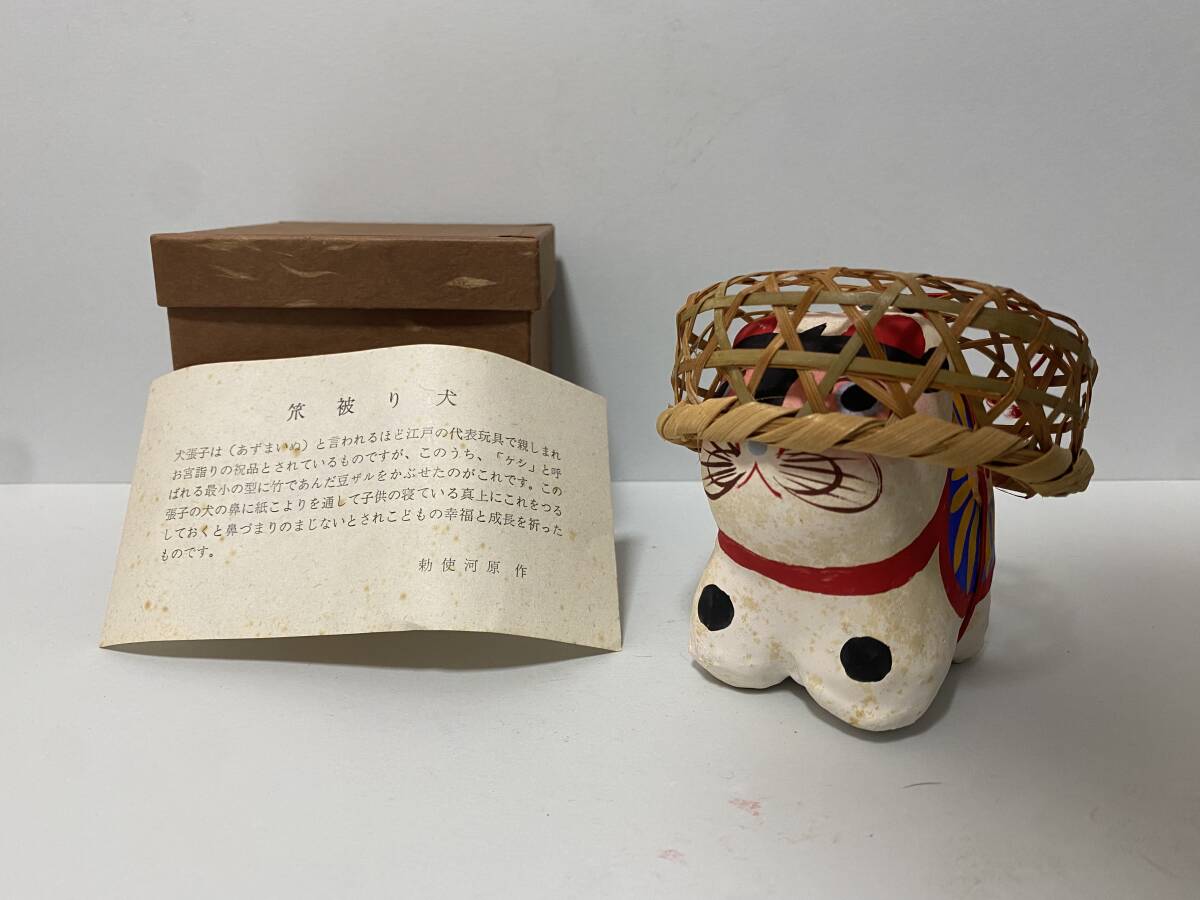 笊被り犬
犬張子は（あずまいぬ）と言われるほど江戸の代表玩具で親しまれ
お宮詣りの祝品とされているものですが、このうち、「ケシ」と呼
ばれる最小の型に竹であんだ豆ザルをかぶせたのがこれです。この
張子の犬の鼻に紙こよりを通して子供の寝ている真上にこれをつる
しておくと鼻づまりのまじないとされこどもの幸福と成長を祈った
ものです。
勅使河原 作